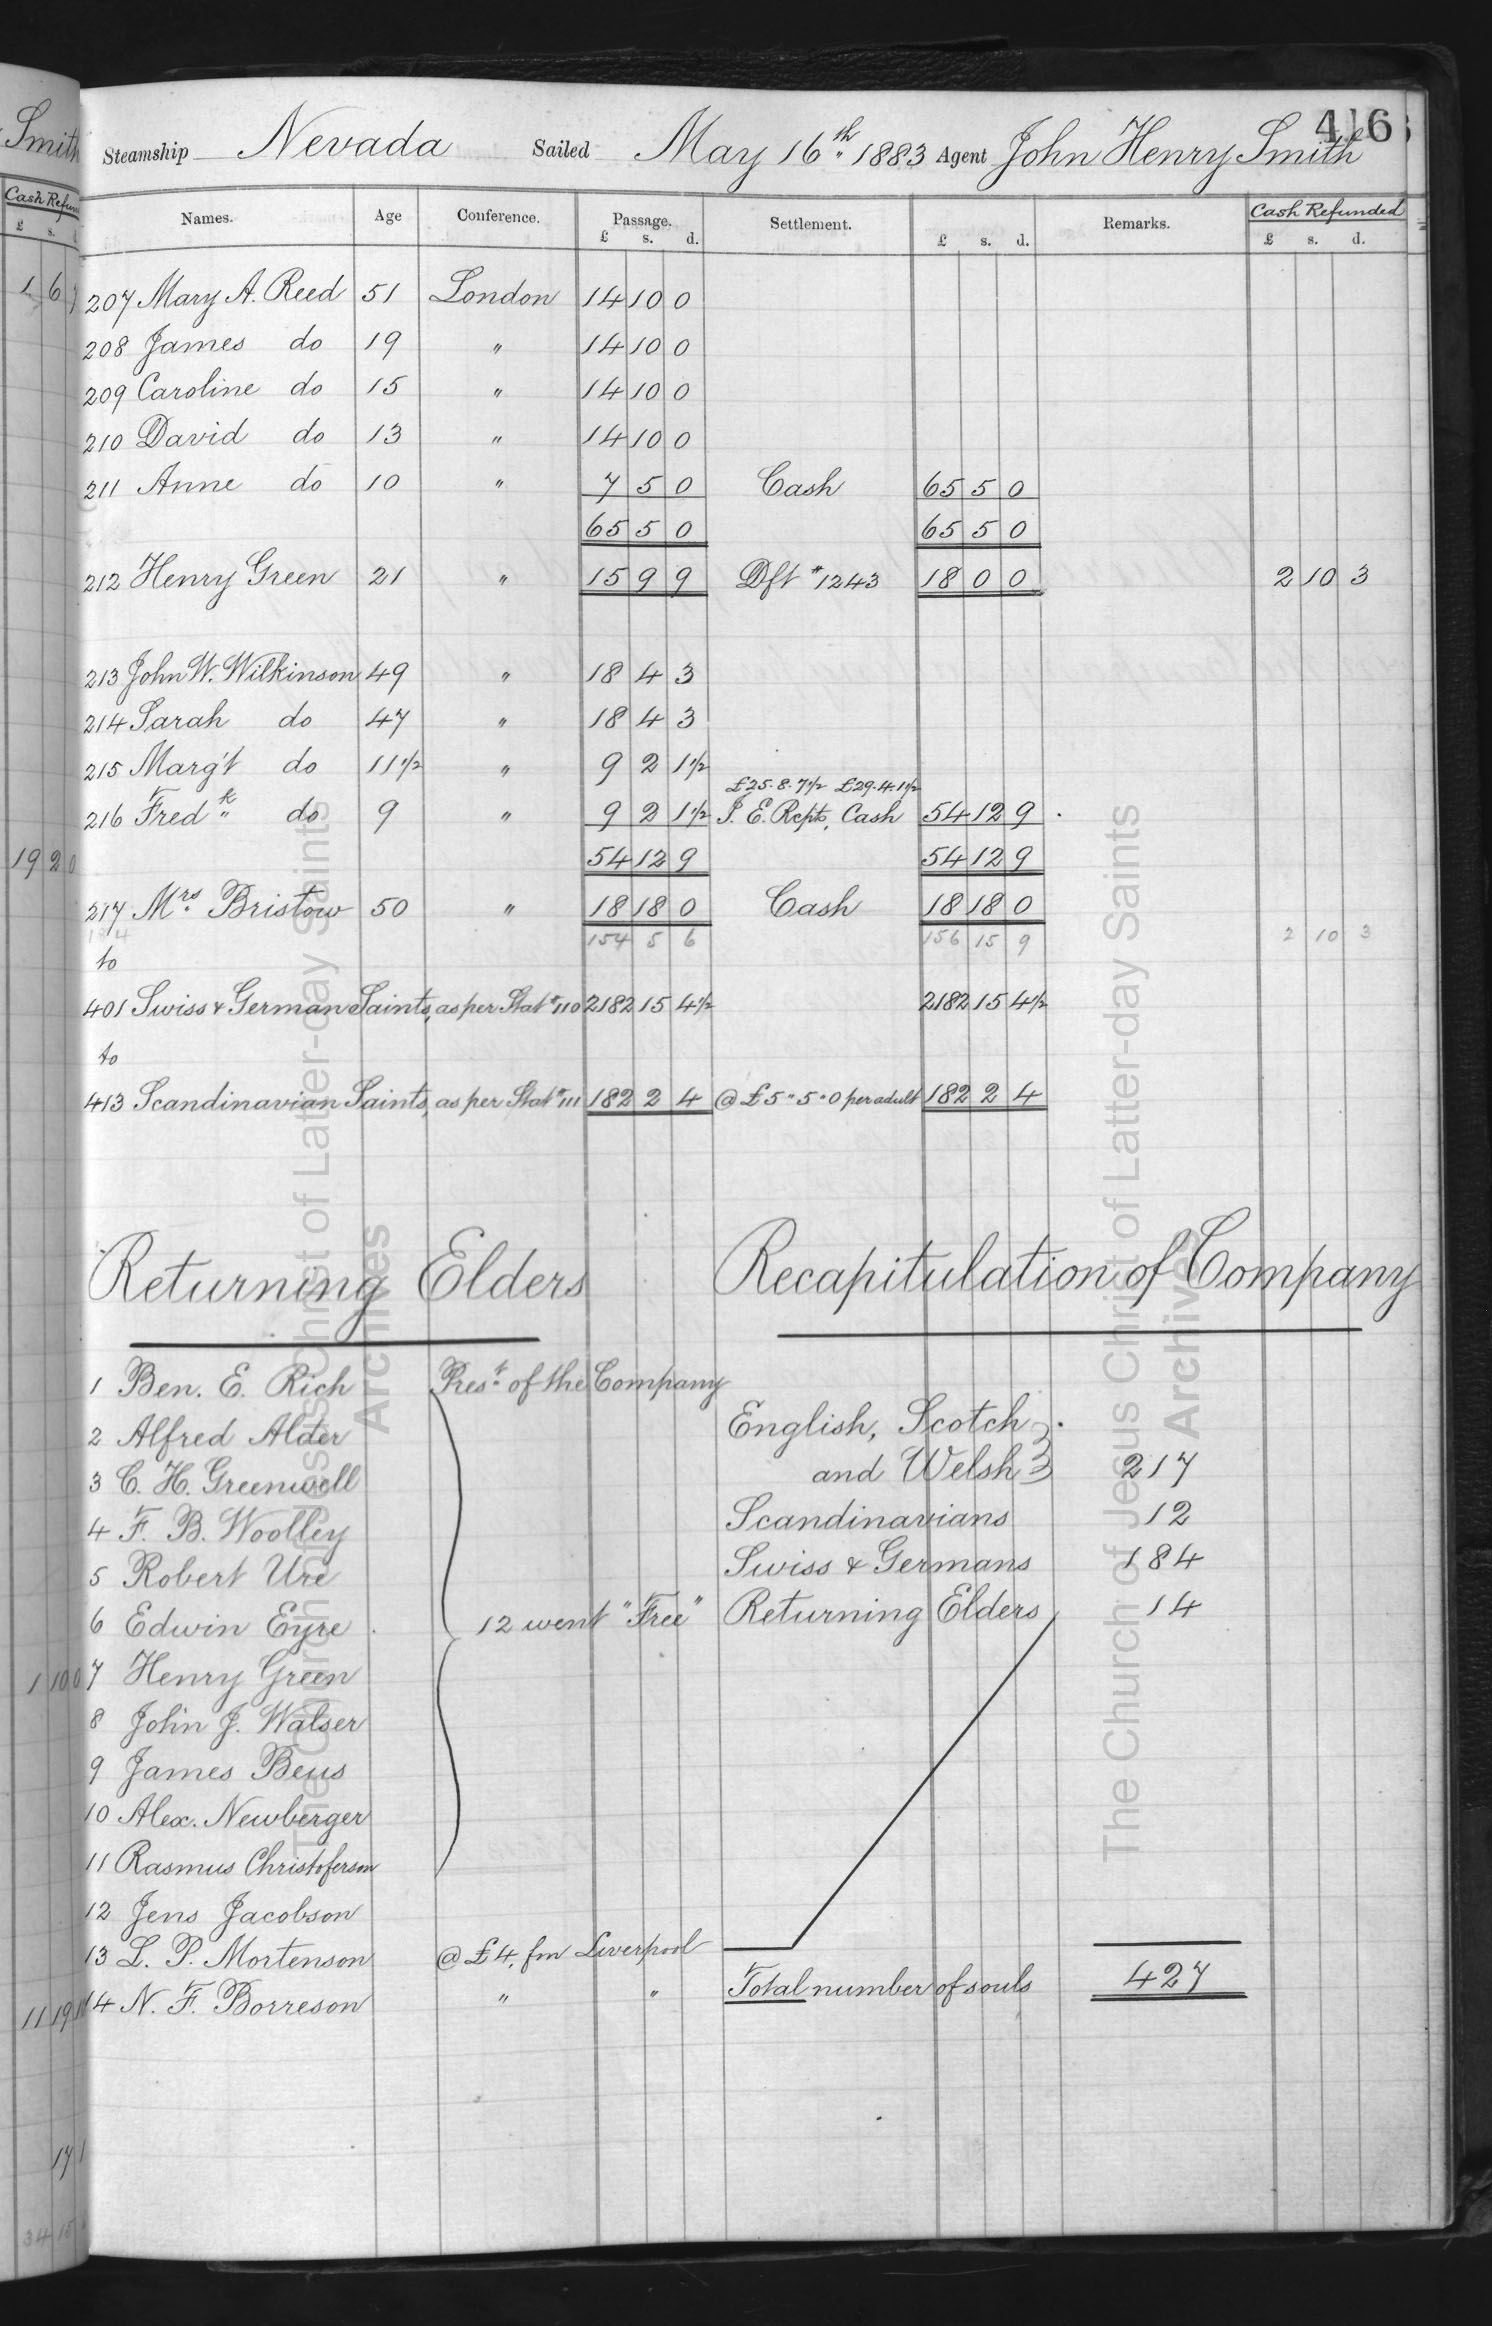 416
Steamship Nevada Sailed May 16th 1883 Agent John Henry Smith
Names. Age Conference. Passage. Settlement. Remarks. Cash Refunded
£ s. d. £ s. d. £ s. d.
207 Mary A. Reed 51 London 14 10 0
208 James do 19 " 14 10 0
209 Caroline do 15 " 14 10 0
210 David do 13 " 14 10 0
211 Anne do 10 " 7 5 0 Cash 65 5 0
65 5 0 65 5 0
212 Henry Green 21 " 15 9 9 Dft #1243 18 0 0 2 10 3
213 John W. Wilkinson 49 " 18 4 3
214 Sarah do 47 " 18 4 3
215 Marg't do 11 1/2 " 9 2 1 1/2
£25.8.7 1/2 £29.4.1 1/2
216 Fredk do 9 " 9 2 1 1/2 I. E. Rcpts, Cash 54 12 9
54 12 9 54 12 9
217 Mrs Bristow 50 " 18 18 0 Cash 18 18 0
184 154 5 6 156 15 9 2 10 3
to
401 Swiss & German Saints, as per Stat #110 2182 15 4 1/2 2182 15 4 1/2
to
413 Scandinavian Saints, as per Stat #111 182 2 4 @ £5"5"0 per adult 182 2 4
Returning Elders
1 Ben. E. Rich Prest of the Company
2 Alfred Alder
3 C. H. Greenwell
4 F. B. Woolley
5 Robert Ure
6 Edwin Eyre 12 went "Free"
7 Henry Green
8 John J. Walser
9 James Beus
10 Alex. Newberger
11 Rasmus Christoferson
12 Jens Jacobson
13 L. P. Mortenson @ £4, fm Liverpool
14 N. F. Borreson " "
Recapitulation of Company
English, Scotch
and Welsh 217
Scandinavians 12
Swiss & Germans 184
Returning Elders 14
Total number of souls 427
The Church of Jesus Christ of Latter-day Saints
Archives
The Church of Jesus Christ of Latter-day Saints
Archives
Smith
Cash Refun
£ s.
1 6
19 2 0
1 10 0
11 19
17 1
34 15